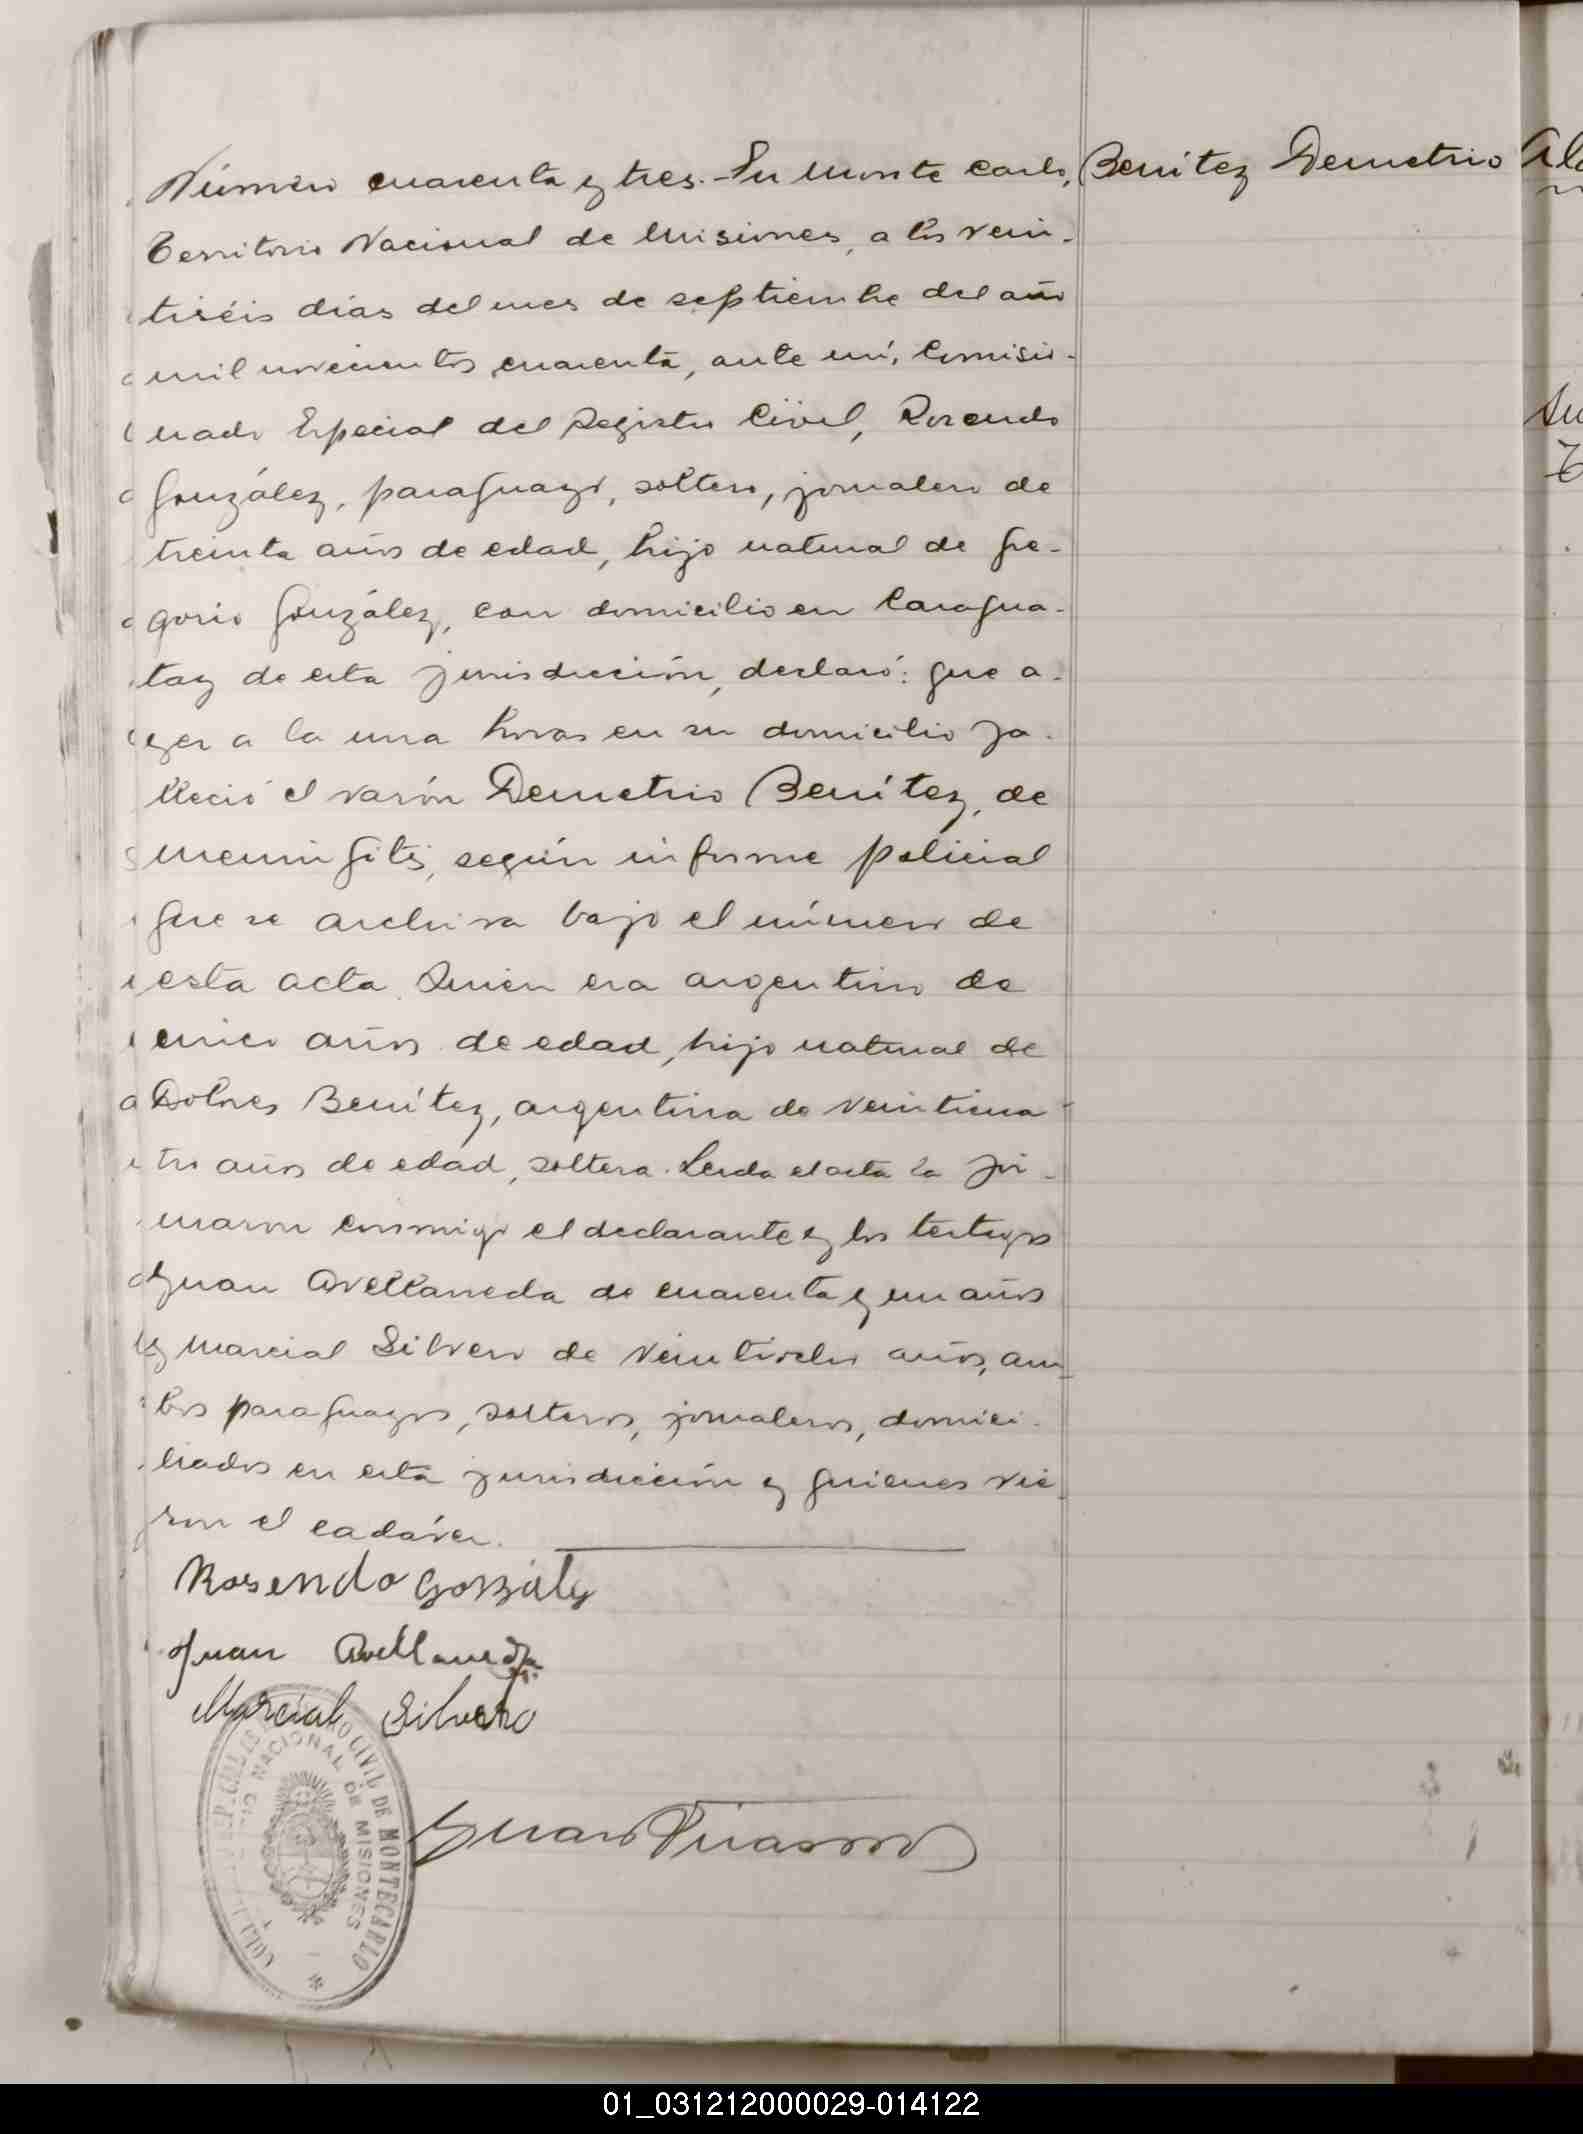 Número cuarenta y tres.- En Monte Carlo,
Benítez Demetrio
Territorio Nacional de Misiones, a los vein-
tiséis días del mes de septiembre del año
mil novecientos cuarenta, ante mí, Comisio-
nado Especial del Registro Civil, Rosendo
González, paraguayo, soltero, jornalero de
treinta años de edad, hijo natural de Gre-
gorio González, con domicilio en Caragua-
tay de esta jurisdicción, declaró: que a-
yer a la una horas en su domicilio fa-
lleció el varón Demetrio Benítez, de
meningitis, según informe policial
que se archiva bajo el número de
esta acta. Quien era argentino de
cinco años de edad, hijo natural de
Dolores Benítez, argentina de veinticua-
tro años de edad, soltera. Leída el acta la fir-
maron conmigo el declarante y los testigos
Juan Avellaneda de cuarenta y un años
y Marcial Silvero de veintiocho años, am-
bos paraguayos, solteros, jornaleros, domici-
liados en esta jurisdicción y quienes vie-
ron el cadáver.
Rosendo González
Juan Avellaneda
Marcial Silvero
CIVIL DE MONTECARLO
NACIONAL DE MISIONES
01_031212000029-014122